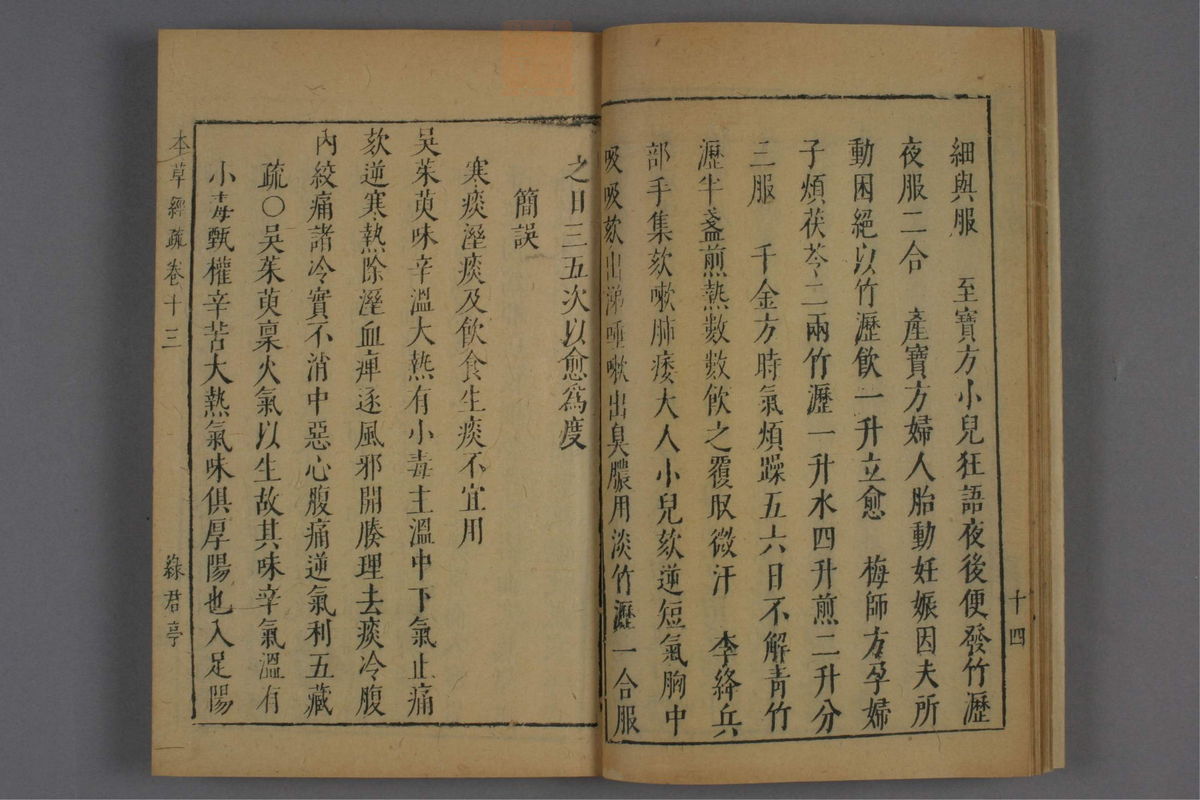 細與服　至寶方小兒狂語夜後便發竹瀝
夜服二合　產寶方婦人胎動妊娠因夫所
動困絕以竹瀝飲一升立愈　梅師方孕婦
子煩茯苓二兩竹瀝一升水四升煎二升分
三服　千金方時氣煩躁五六日不解青竹
瀝半盞煎熱數數飲之覆取微汗　李絳兵
部手集欬嗽肺痿大人小兒欬逆短氣胸中
吸吸欬出涕唾嗽出臭膿用淡竹瀝一合服
十四
之日三五次以愈爲度
簡誤
寒痰溼痰及飲食生痰不宜用
吳茱萸味辛溫大熱有小毒主溫中下氣止痛
欬逆寒熱除溼血痺逐風邪開腠理去痰冷腹
內絞痛諸冷實不消中惡心腹痛逆氣利五藏
疏○吳茱萸稟火氣以生故其味辛氣溫有
小毒甄權辛苦大熱氣味俱厚陽也入足陽
本草經疏卷十三
綠君亭